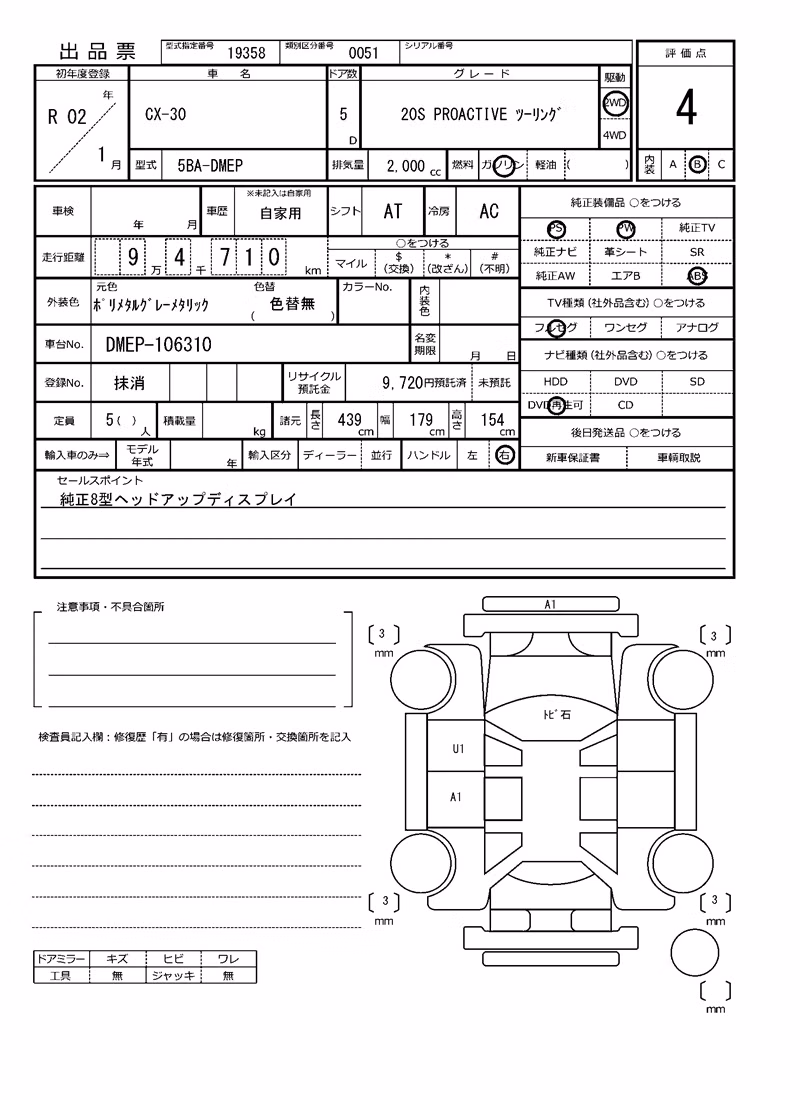 出品票 型式指定番号 19358 類別区分番号 0051 シリアル番号
評価点
4
内装 A B C
初年度登録 車名 ドア数 グレード 駆動
R 02 年 1 月
CX-30
5 D
20S PROACTIVE ﾂｰﾘﾝｸﾞ
2WD
4WD
型式 5BA-DMEP 排気量 2,000 cc 燃料 ガソリン 軽油 ( )
車検 年 月 車歴 ※未記入は自家用 自家用 シフト AT 冷房 AC
走行距離 9 万 4 千 7 1 0 km
○をつける
マイル $ (交換) * (改ざん) # (不明)
外装色 元色 ﾎﾟﾘﾒﾀﾙｸﾞﾚｰﾒﾀﾘｯｸ 色替 ( 色替無 ) カラーNo. 内装色
車台No. DMEP-106310 名変期限 月 日
登録No. 抹消 リサイクル預託金 9,720円預託済 未預託
定員 5( ) 人 積載量 kg 諸元 長さ 439 cm 幅 179 cm 高さ 154 cm
輸入車のみ⇒ モデル年式 年 輸入区分 ディーラー 並行 ハンドル 左 右
純正装備品 ○をつける
PS PW 純正TV
純正ナビ 革シート SR
純正AW エアB ABS
TV種類(社外品含む)○をつける
フルセグ ワンセグ アナログ
ナビ種類(社外品含む)○をつける
HDD DVD SD
DVD再生可 CD
後日発送品 ○をつける
新車保証書 車輌取説
セールスポイント
純正8型ヘッドアップディスプレイ
注意事項・不具合箇所
検査員記入欄：修復歴「有」の場合は修復箇所・交換箇所を記入
ドアミラー キズ ヒビ ワレ
工具 無 ジャッキ 無
A1
3 mm
3 mm
ﾄﾋﾞ石
U1
A1
3 mm
3 mm
mm